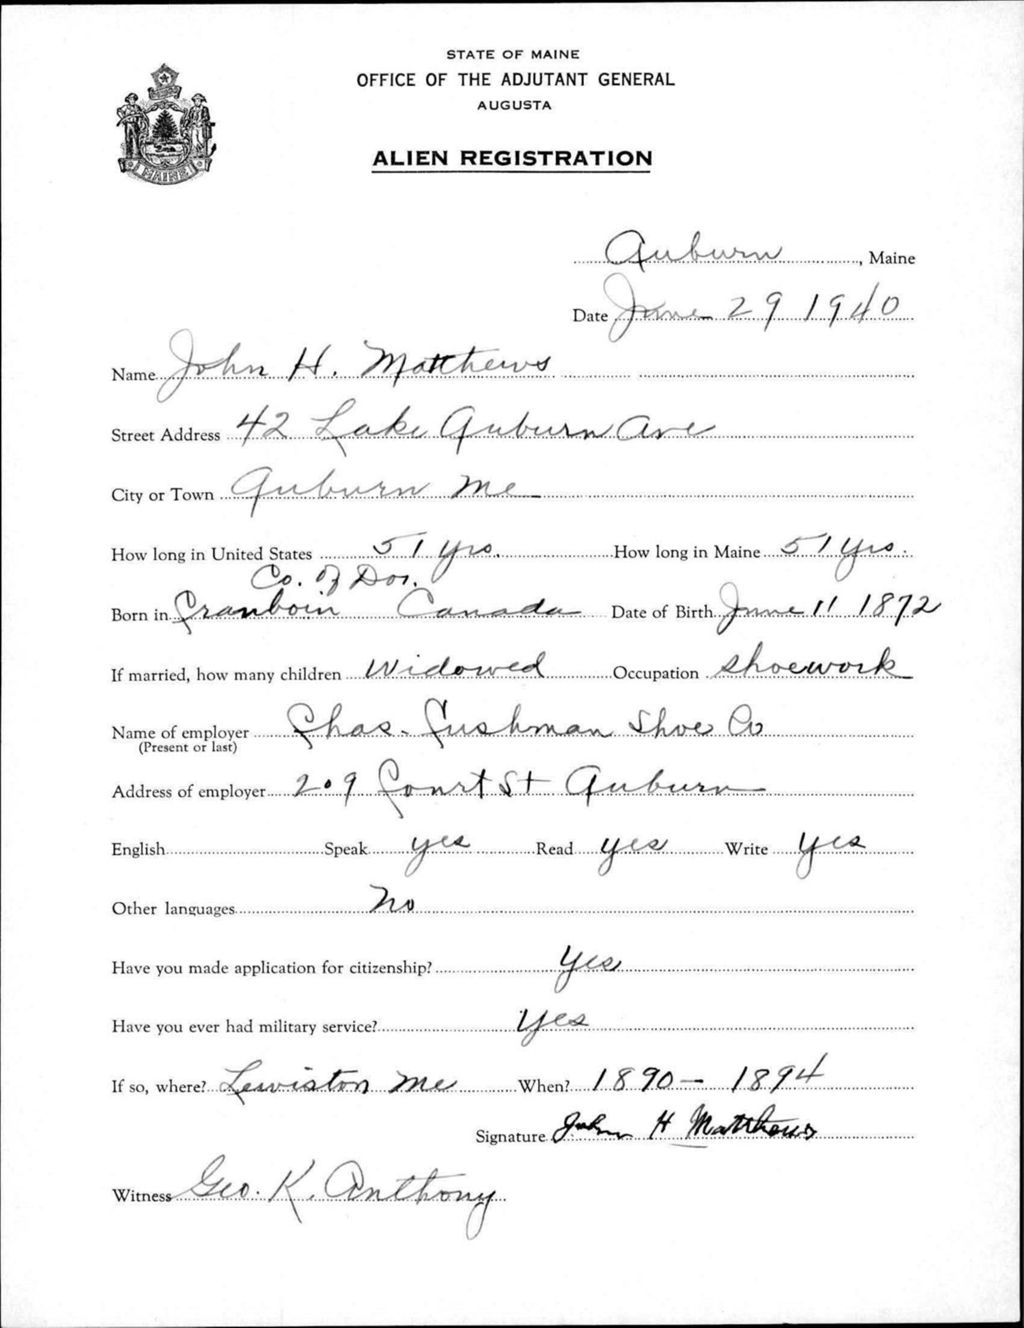 STATE OF MAINE
OFFICE OF THE ADJUTANT GENERAL
AUGUSTA
MAINE
ALIEN REGISTRATION
Auburn, Maine
Date June 29 1940
Name John H. Matthews
Street Address 42 Lake Auburn Ave
City or Town Auburn Me
How long in United States 51 yrs. How long in Maine 51 yrs.
Co. of
Born in Cranboin Canada Date of Birth June 11 1872
If married, how many children Widowed Occupation shoework
Name of employer Chas. Cushman Shoe Co
(Present or last)
Address of employer 209 Court St Auburn
English Speak yes Read yes Write yes
Other languages No
Have you made application for citizenship? Yes
Have you ever had military service? Yes
If so, where? Lewiston Me When? 1890 - 1894
Signature John H Matthews
Witness Geo. K. Anthony